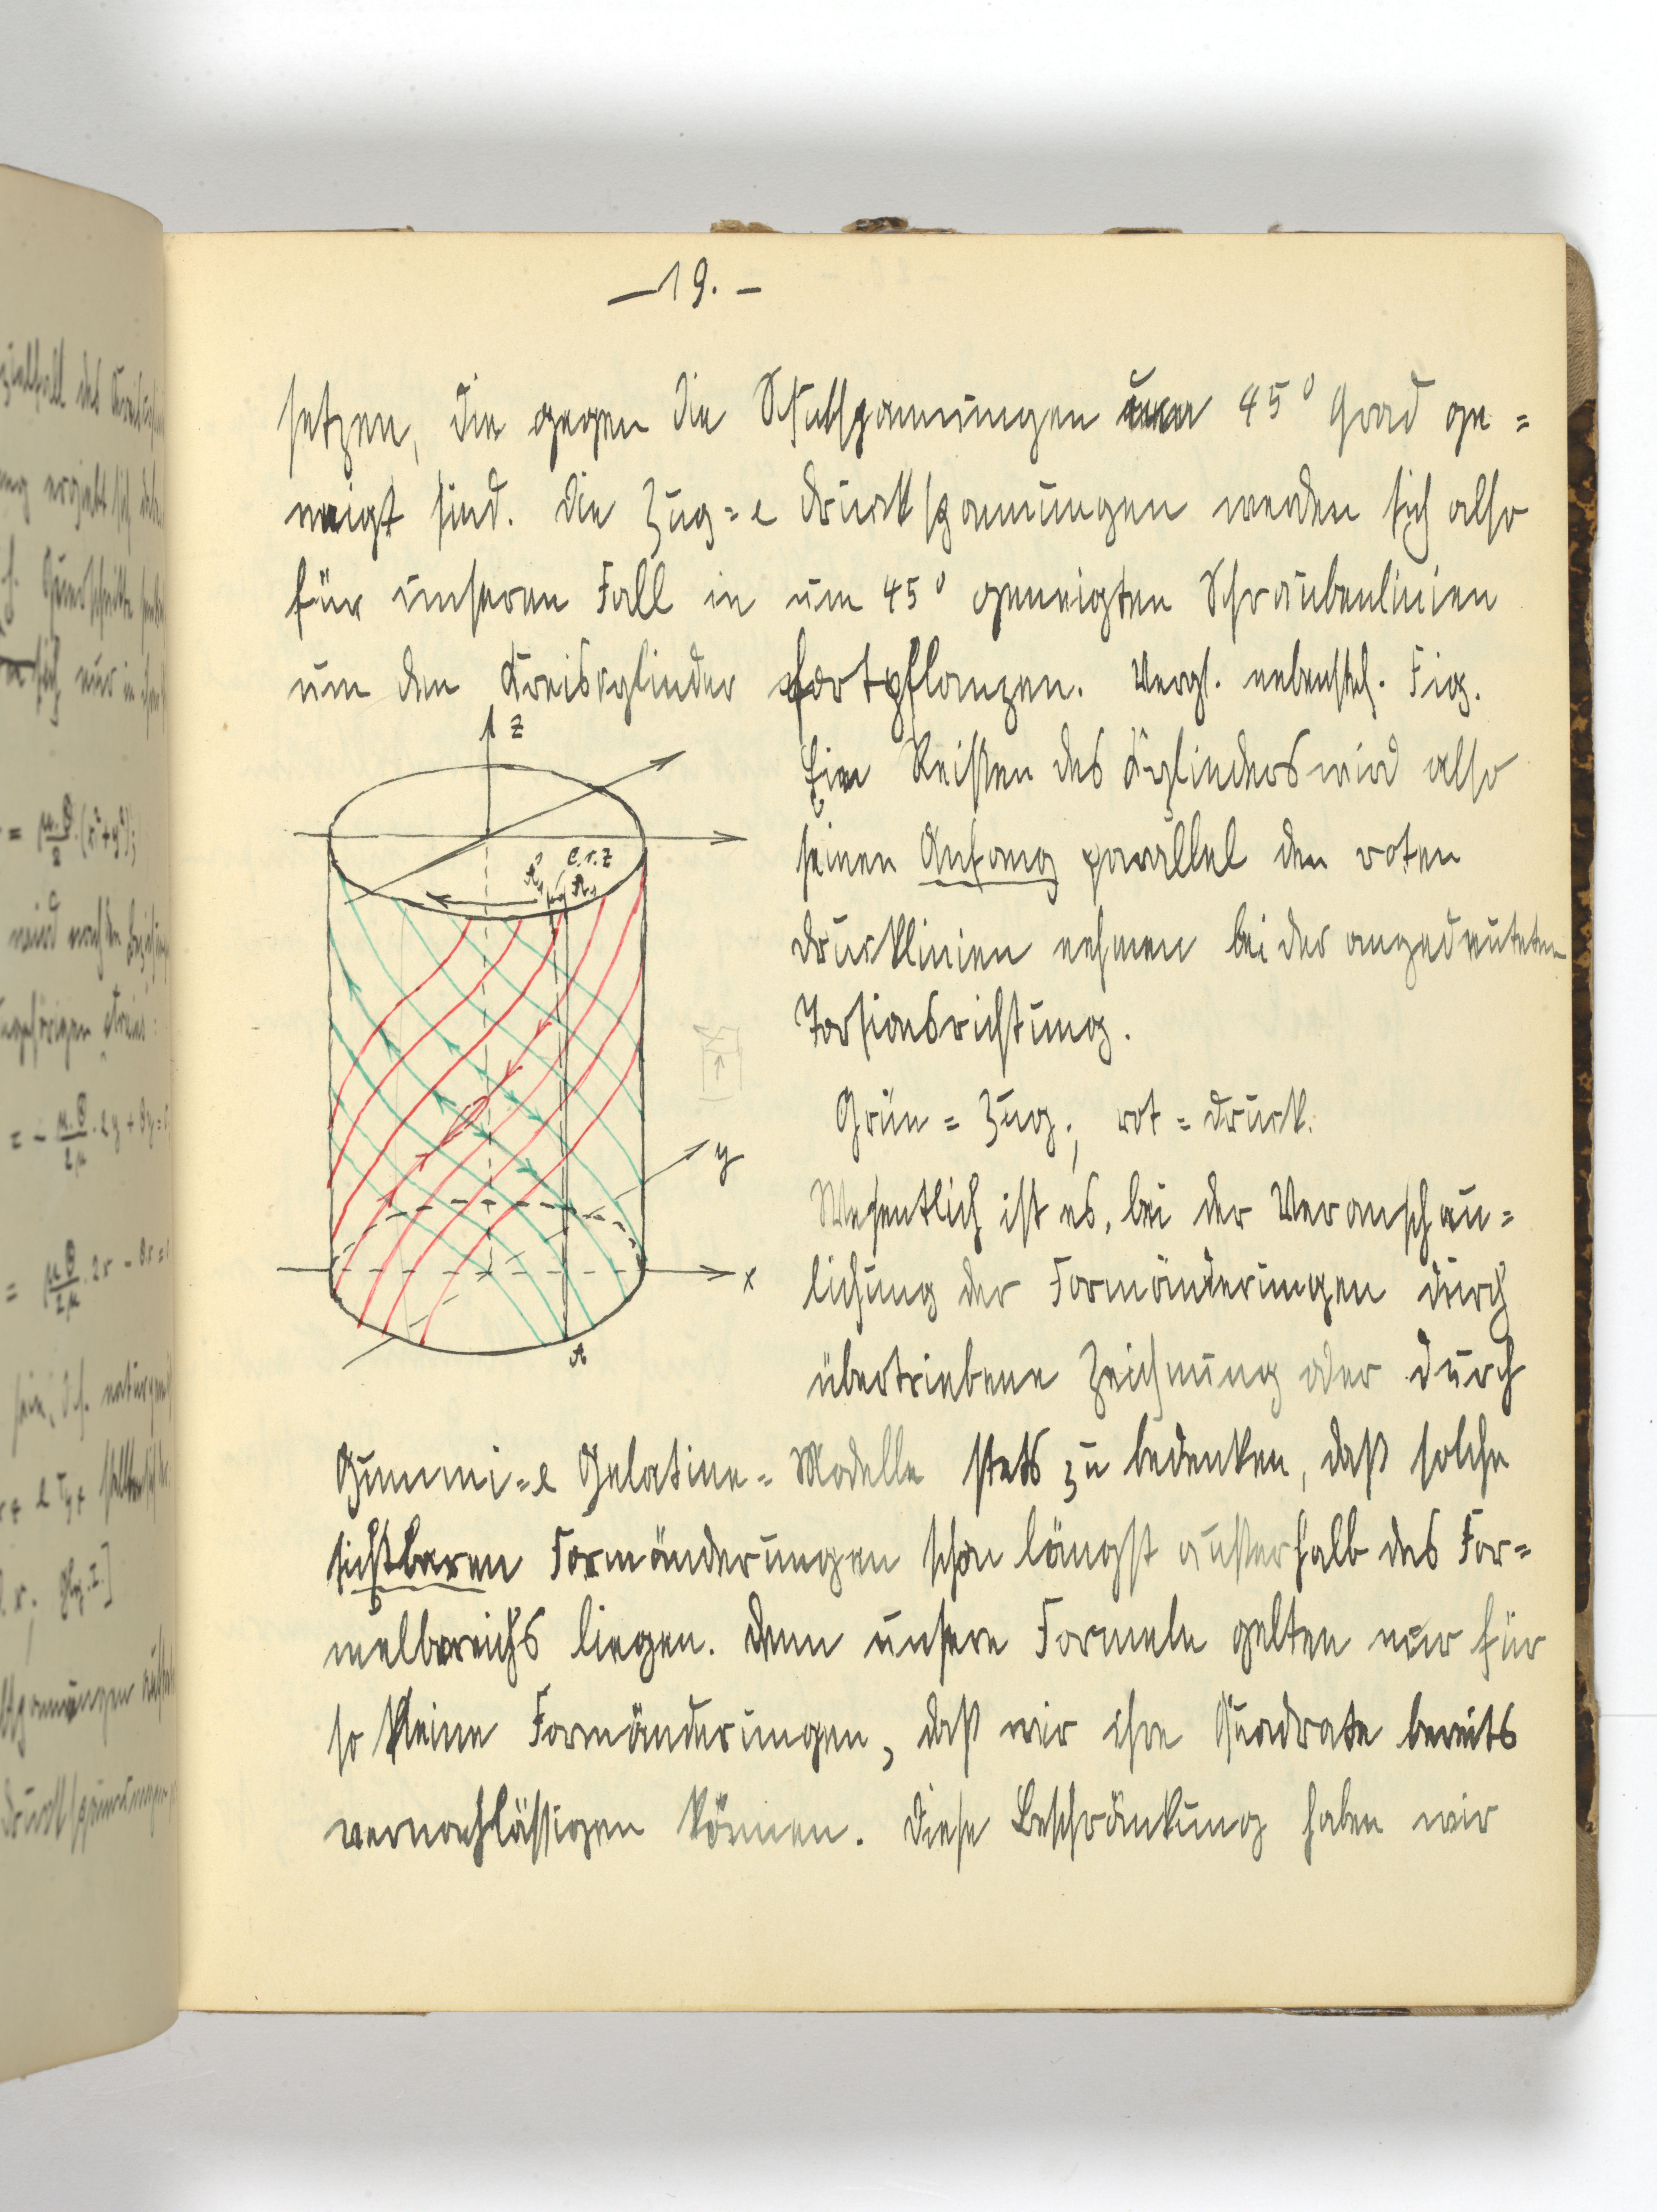 — 19. —
setzen, die gegen die Schubspannungen um 45° Grad ge=
neigt sind. Die Zug= & Druckspannungen werden sich also
für unseren Fall in um 45° geneigten Schraubenlinien
um den Kreiszylinder fortpflanzen. Vergl. nebensteh. Fig.
Ein Reißen des Zylinders wird also
seinen Anfang parallel den roten
Drucklinien nehmen bei der angedeuteten
Torsionsrichtung.
Grün = Zug; rot = Druck.
Wesentlich ist es, bei der Veranschau=
lichung der Formänderungen durch
übertriebene Zeichnung oder durch
Gummi= & Gelatine= Modelle stets zu bedenken, daß solche
sichtbaren Formänderungen schon längst außerhalb des For=
melbereichs liegen. Denn unsere Formeln gelten nur für
so kleine Formänderungen, daß wir ihre Quadrate bereits
vernachlässigen können. Diese Beschränkung haben wir
z
y
x
A